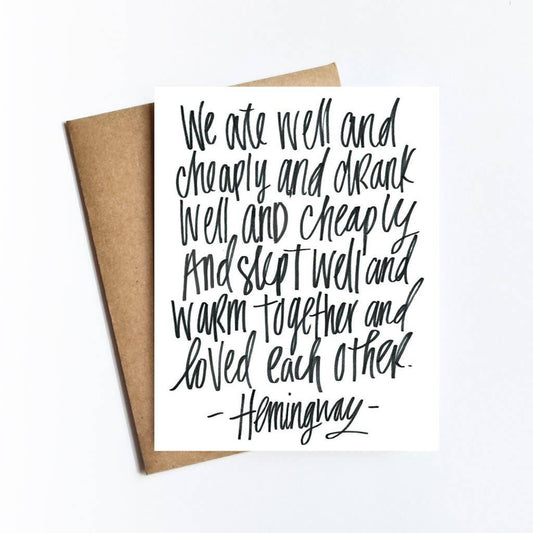 We ate well and
cheaply and drank
well and cheaply
And slept well and
warm together and
loved each other.
- Hemingway -